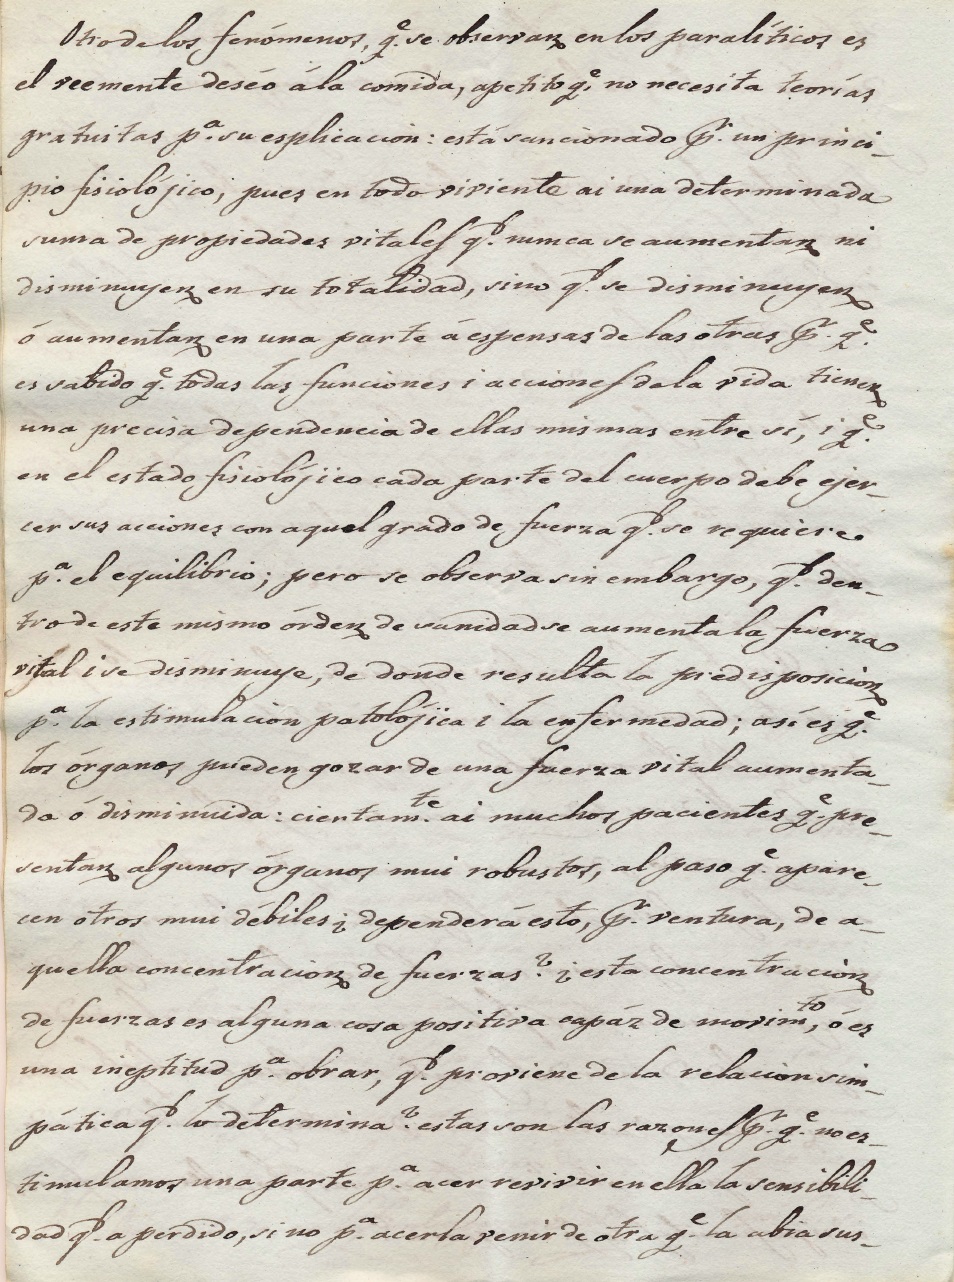 Otro de los fenómenos, q.e se observan en los paralíticos es
el veemente deséo á la comida, apetito q.e no necesita teorías
gratuitas p.a su esplicacion: está sancionado p.r un princi-
pio fisiolójico; pues en todo viviente ai una determinada
suma de propiedades vitales q.e nunca se aumentan ni
disminuyen en su totalidad, sino q.e se disminuyen
ó aumentan en una parte á espensas de las otras p.r q.e
es sabido q.e todas las funciones i acciones de la vida tienen
una precisa dependencia de ellas mismas entre sí, i q.e
en el estado fisiolójico cada parte del cuerpo debe ejer-
cer sus acciones con aquel grado de fuerza q.e se requiere
p.a el equilibrio; pero se observa sin embargo, q.e den-
tro de este mismo órden de sanidad se aumenta la fuerza
vital i se disminuye, de donde resulta la predisposicion
p.a la estimulacion patolójica i la enfermedad; así es q.e
los órganos pueden gozar de una fuerza vital aumenta-
da ó disminuida: ciertam.te ai muchos pacientes q.e pre-
sentan algunos órganos mui robustos, al paso q.e apare-
cen otros mui débiles ¿dependerá esto, p.r ventura, de a-
quella concentracion de fuerzas? ¿esta concentracion
de fuerzas es alguna cosa positiva capáz de movim.to, ó es
una ineptitud p.a obrar, q.e proviene de la relacion sim-
pática q.e lo determina? estas son las razones p.r q.e no es-
timulamos una parte p.a acer revivir en ella la sensibili-
dad q.e a perdido, si no p.a acerla venir de otra q.e la abia sus-